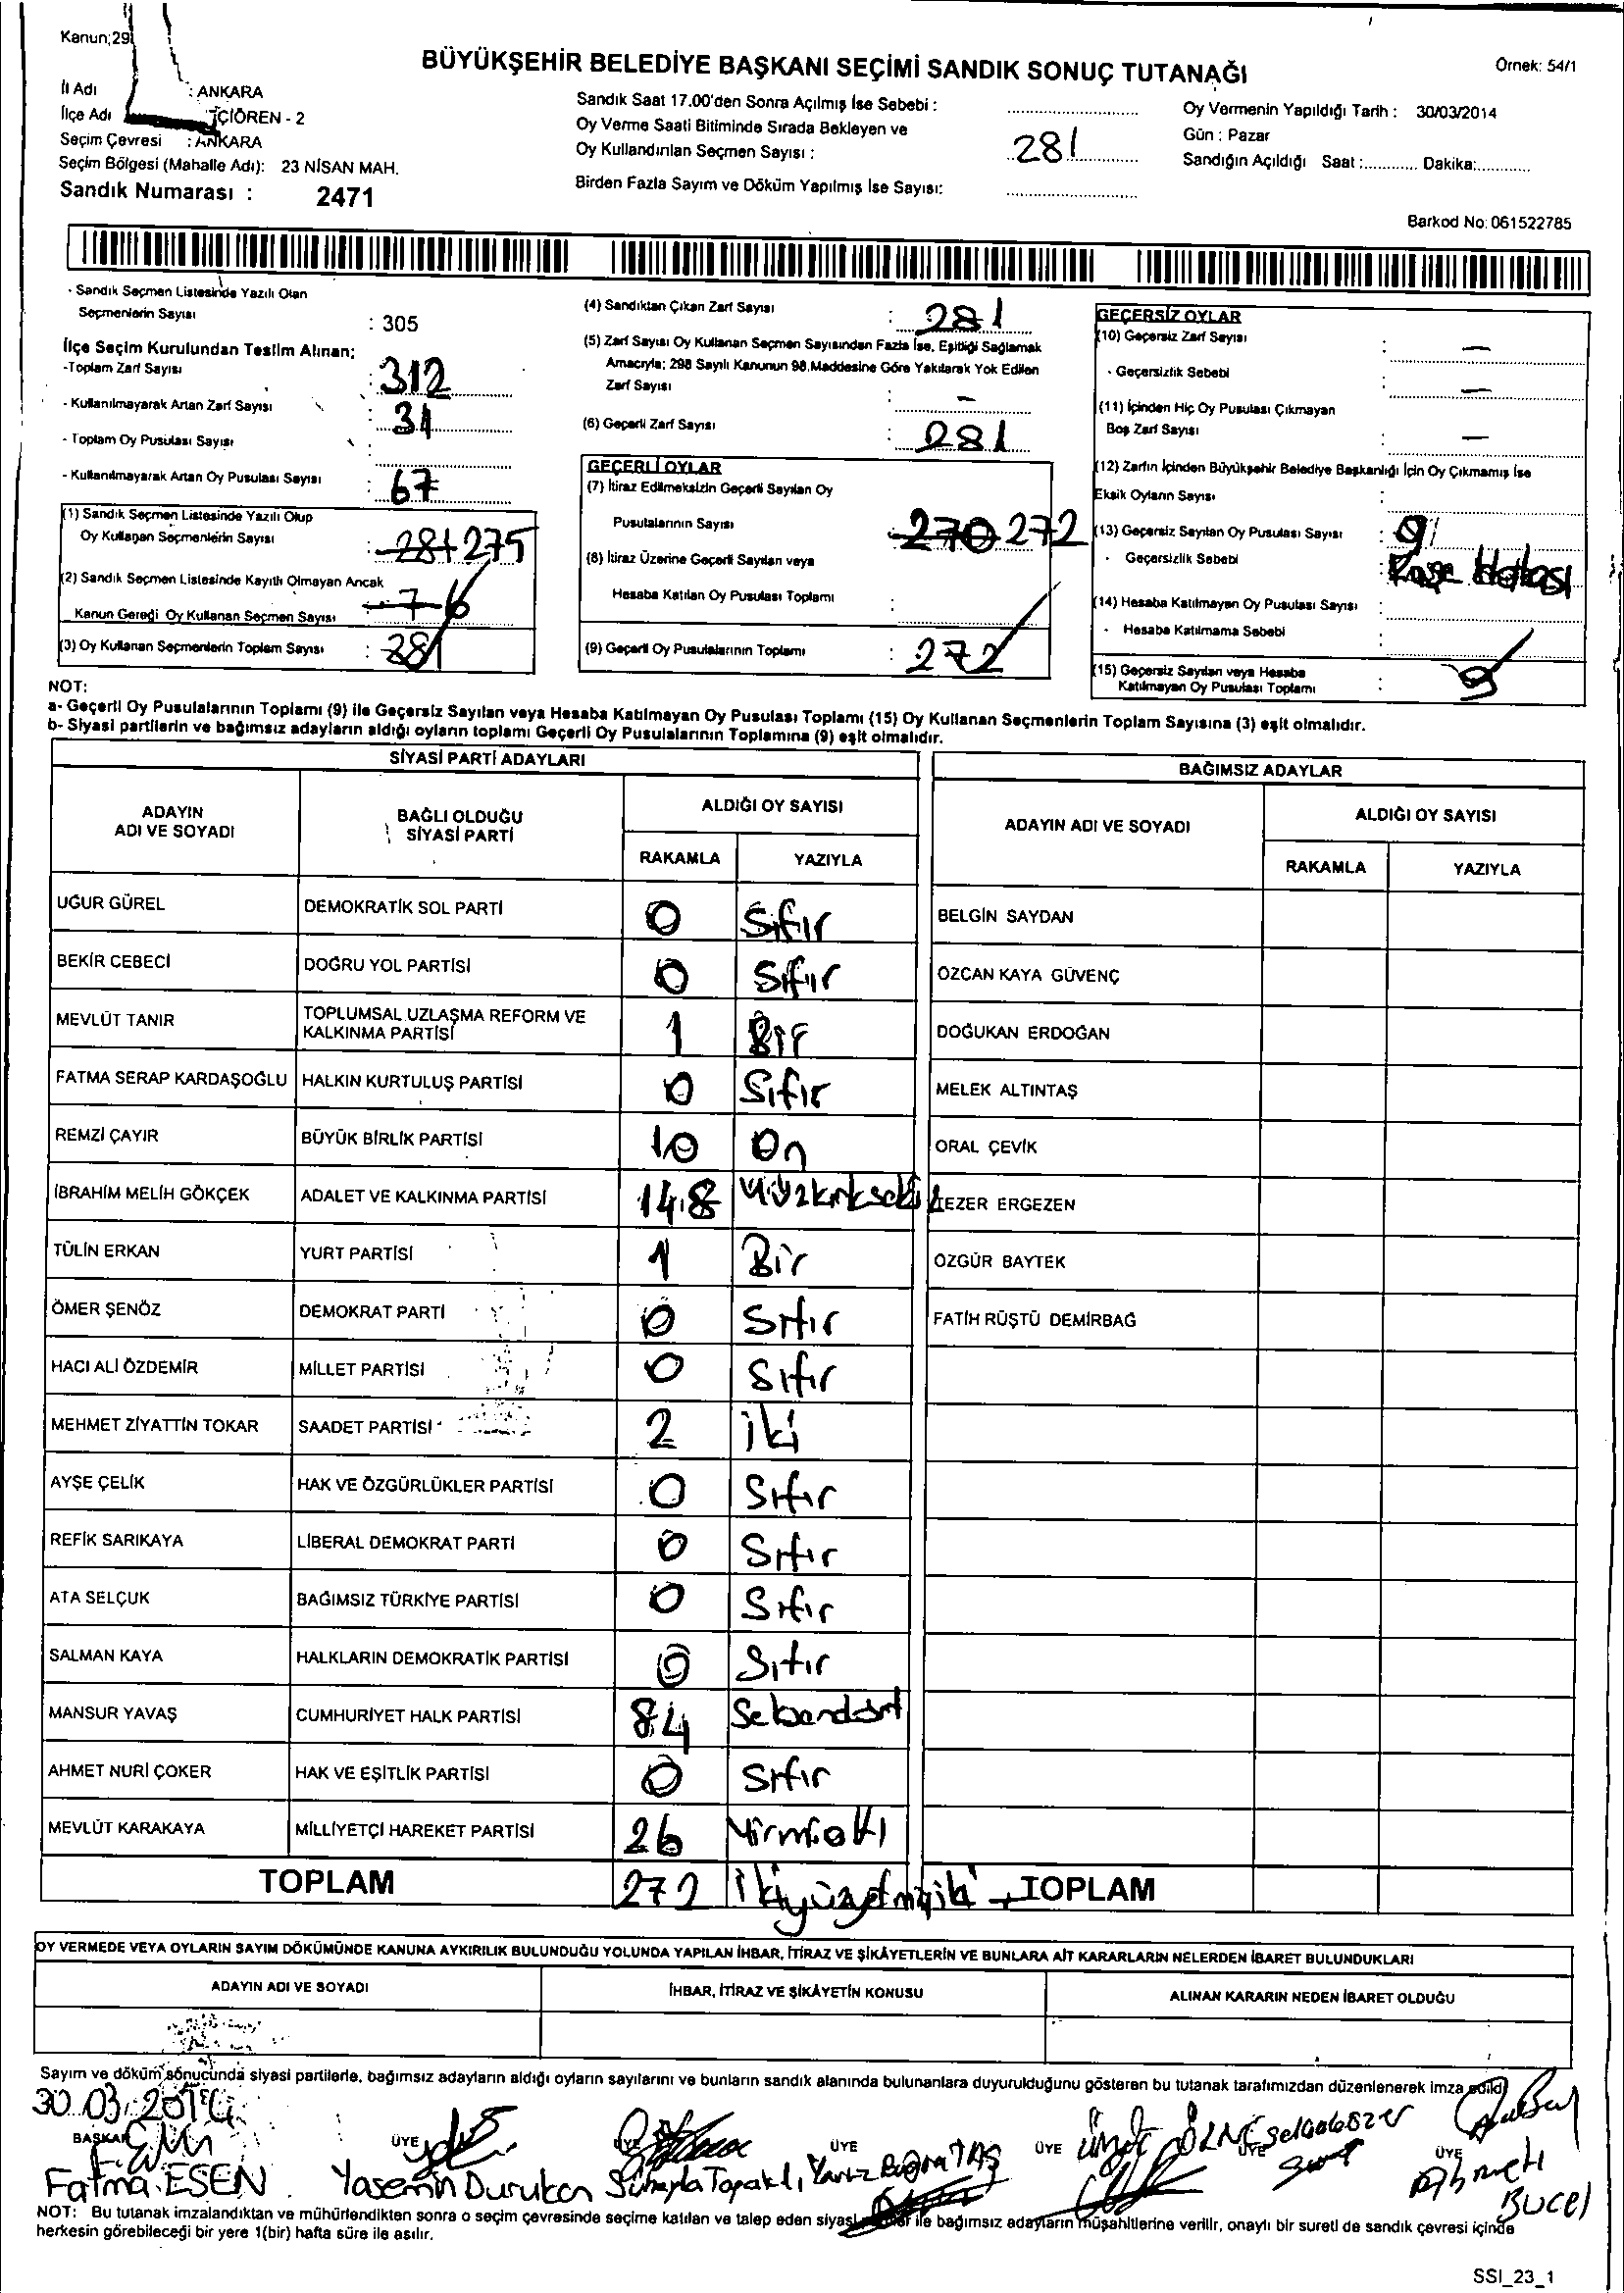 Kanun;29
BÜYÜKŞEHİR BELEDİYE BAŞKANI SEÇİMİ SANDIK SONUÇ TUTANAĞI
Örnek: 54/1
İl Adı : ANKARA
İlçe Adı ÇİÖREN - 2
Seçim Çevresi : ANKARA
Seçim Bölgesi (Mahalle Adı): 23 NİSAN MAH.
Sandık Numarası : 2471
Sandık Saat 17.00'den Sonra Açılmış İse Sebebi :
Oy Verme Saati Bitiminde Sırada Bekleyen ve
Oy Kullandırılan Seçmen Sayısı : 281
Birden Fazla Sayım ve Döküm Yapılmış İse Sayısı:
Oy Vermenin Yapıldığı Tarih : 30/03/2014
Gün : Pazar
Sandığın Açıldığı Saat :............ Dakika:............
Barkod No: 061522785
- Sandık Seçmen Listesinde Yazılı Olan
Seçmenlerin Sayısı : 305
İlçe Seçim Kurulundan Teslim Alınan:
-Toplam Zarf Sayısı : 312
- Kullanılmayarak Artan Zarf Sayısı : 31
- Toplam Oy Pusulası Sayısı :
- Kullanılmayarak Artan Oy Pusulası Sayısı : 67
(1) Sandık Seçmen Listesinde Yazılı Olup
Oy Kullanan Seçmenlerin Sayısı : 281 275
(2) Sandık Seçmen Listesinde Kayıtlı Olmayan Ancak
Kanun Gereği Oy Kullanan Seçmen Sayısı 7 6
(3) Oy Kullanan Seçmenlerin Toplam Sayısı : 281
(4) Sandıktan Çıkan Zarf Sayısı : 281
(5) Zarf Sayısı Oy Kullanan Seçmen Sayısından Fazla İse, Eşitliği Sağlamak
Amacıyla; 298 Sayılı Kanunun 98.Maddesine Göre Yakılarak Yok Edilen
Zarf Sayısı : -
(6) Geçerli Zarf Sayısı : 281
GEÇERLİ OYLAR
(7) İtiraz Edilmeksizin Geçerli Sayılan Oy
Pusulalarının Sayısı 270 272
(8) İtiraz Üzerine Geçerli Sayılan veya
Hesaba Katılan Oy Pusulası Toplamı :
(9) Geçerli Oy Pusulalarının Toplamı : 272
GEÇERSİZ OYLAR
(10) Geçersiz Zarf Sayısı : -
- Geçersizlik Sebebi : -
(11) İçinden Hiç Oy Pusulası Çıkmayan
Boş Zarf Sayısı : -
(12) Zarfın İçinden Büyükşehir Belediye Başkanlığı İçin Oy Çıkmamış İse
Eksik Oyların Sayısı :
(13) Geçersiz Sayılan Oy Pusulası Sayısı : 9
- Geçersizlik Sebebi : Kaşe Hatası
(14) Hesaba Katılmayan Oy Pusulası Sayısı :
- Hesaba Katılmama Sebebi :
(15) Geçersiz Sayılan veya Hesaba
Katılmayan Oy Pusulası Toplamı : 9
NOT:
a- Geçerli Oy Pusulalarının Toplamı (9) ile Geçersiz Sayılan veya Hesaba Katılmayan Oy Pusulası Toplamı (15) Oy Kullanan Seçmenlerin Toplam Sayısına (3) eşit olmalıdır.
b- Siyasi partilerin ve bağımsız adayların aldığı oyların toplamı Geçerli Oy Pusulalarının Toplamına (9) eşit olmalıdır.
SİYASİ PARTİ ADAYLARI
ADAYIN ADI VE SOYADI
BAĞLI OLDUĞU SİYASİ PARTİ
ALDIĞI OY SAYISI
RAKAMLA YAZIYLA
UĞUR GÜREL DEMOKRATİK SOL PARTİ 0 Sıfır
BEKİR CEBECİ DOĞRU YOL PARTİSİ 0 Sıfır
MEVLÜT TANIR TOPLUMSAL UZLAŞMA REFORM VE KALKINMA PARTİSİ 1 Bir
FATMA SERAP KARDAŞOĞLU HALKIN KURTULUŞ PARTİSİ 0 Sıfır
REMZİ ÇAYIR BÜYÜK BİRLİK PARTİSİ 10 On
İBRAHİM MELİH GÖKÇEK ADALET VE KALKINMA PARTİSİ 148 Yüzkırksekiz
TÜLİN ERKAN YURT PARTİSİ 1 Bir
ÖMER ŞENÖZ DEMOKRAT PARTİ 0 Sıfır
HACI ALİ ÖZDEMİR MİLLET PARTİSİ 0 Sıfır
MEHMET ZİYATTİN TOKAR SAADET PARTİSİ 2 iki
AYŞE ÇELİK HAK VE ÖZGÜRLÜKLER PARTİSİ 0 Sıfır
REFİK SARIKAYA LİBERAL DEMOKRAT PARTİ 0 Sıfır
ATA SELÇUK BAĞIMSIZ TÜRKİYE PARTİSİ 0 Sıfır
SALMAN KAYA HALKLARIN DEMOKRATİK PARTİSİ 0 Sıfır
MANSUR YAVAŞ CUMHURİYET HALK PARTİSİ 84 Seksendört
AHMET NURİ ÇOKER HAK VE EŞİTLİK PARTİSİ 0 Sıfır
MEVLÜT KARAKAYA MİLLİYETÇİ HAREKET PARTİSİ 26 Yirmialtı
TOPLAM 272 ikiyüzyetmişiki
BAĞIMSIZ ADAYLAR
ADAYIN ADI VE SOYADI
ALDIĞI OY SAYISI
RAKAMLA YAZIYLA
BELGİN SAYDAN
ÖZCAN KAYA GÜVENÇ
DOĞUKAN ERDOĞAN
MELEK ALTINTAŞ
ORAL ÇEVİK
EZER ERGEZEN
ÖZGÜR BAYTEK
FATİH RÜŞTÜ DEMİRBAĞ
TOPLAM
OY VERMEDE VEYA OYLARIN SAYIM DÖKÜMÜNDE KANUNA AYKIRILIK BULUNDUĞU YOLUNDA YAPILAN İHBAR, İTİRAZ VE ŞİKÂYETLERİN VE BUNLARA AİT KARARLARIN NELERDEN İBARET BULUNDUKLARI
ADAYIN ADI VE SOYADI
İHBAR, İTİRAZ VE ŞİKÂYETİN KONUSU
ALINAN KARARIN NEDEN İBARET OLDUĞU
Sayım ve döküm sonucunda siyasi partilerle, bağımsız adayların aldığı oyların sayılarını ve bunların sandık alanında bulunanlara duyurulduğunu gösteren bu tutanak tarafımızdan düzenlenerek imza edildi
30.03.2014
BAŞKAN ÜYE ÜYE ÜYE ÜYE ÜYE
Fatma ESEN Yasemin Durukan Süheyla Topaklı Ahmet BUCEL
NOT: Bu tutanak imzalandıktan ve mühürlendikten sonra o seçim çevresinde seçime katılan ve talep eden siyasi ile bağımsız adayların müşahitlerine verilir, onaylı bir sureti de sandık çevresi içinde
herkesin görebileceği bir yere 1(bir) hafta süre ile asılır.
SSI_23_1